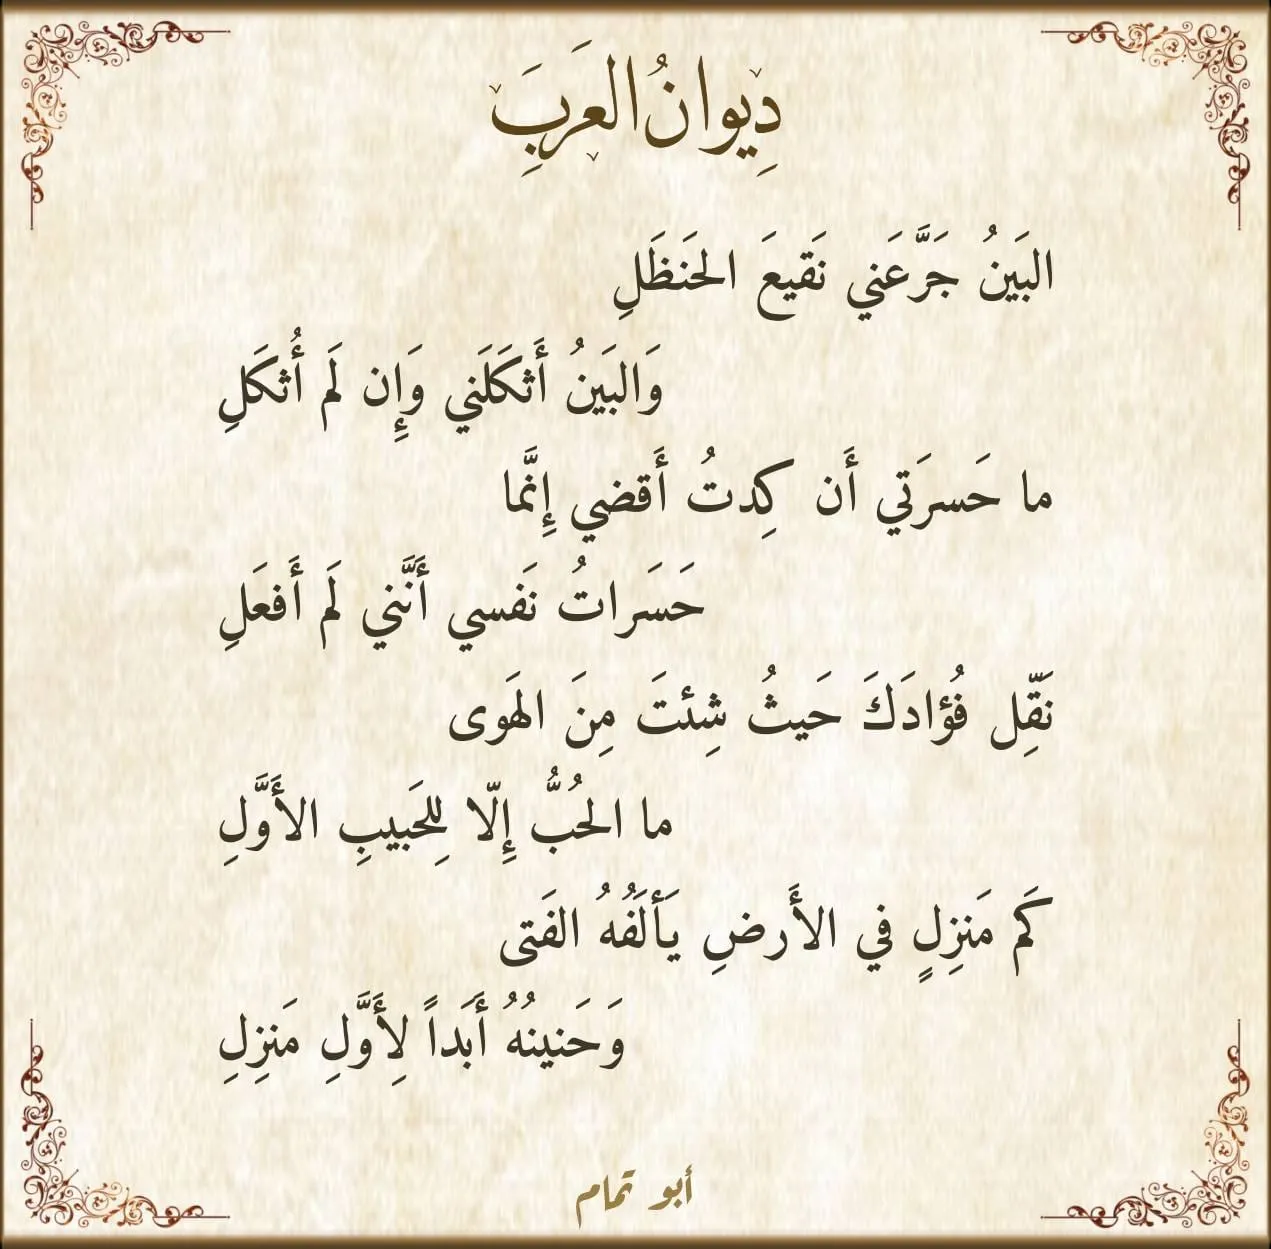 دِيوانُ العَرَبِ
البَينُ جَرَّعَني نَقيعَ الحَنظَلِ
وَالبَينُ أَثكَلَني وَإِن لَم أُثكَلِ
ما حَسرَتي أَن كِدتُ أَقضي إِنَّما
حَسَراتُ نَفسي أَنَّني لَم أَفعَلِ
نَقِّل فُؤادَكَ حَيثُ شِئتَ مِنَ الهَوى
ما الحُبُّ إِلّا لِلحَبيبِ الأَوَّلِ
كَم مَنزِلٍ في الأَرضِ يَألَفُهُ الفَتى
وَحَنينُهُ أَبَداً لِأَوَّلِ مَنزِلِ
أبو تمام